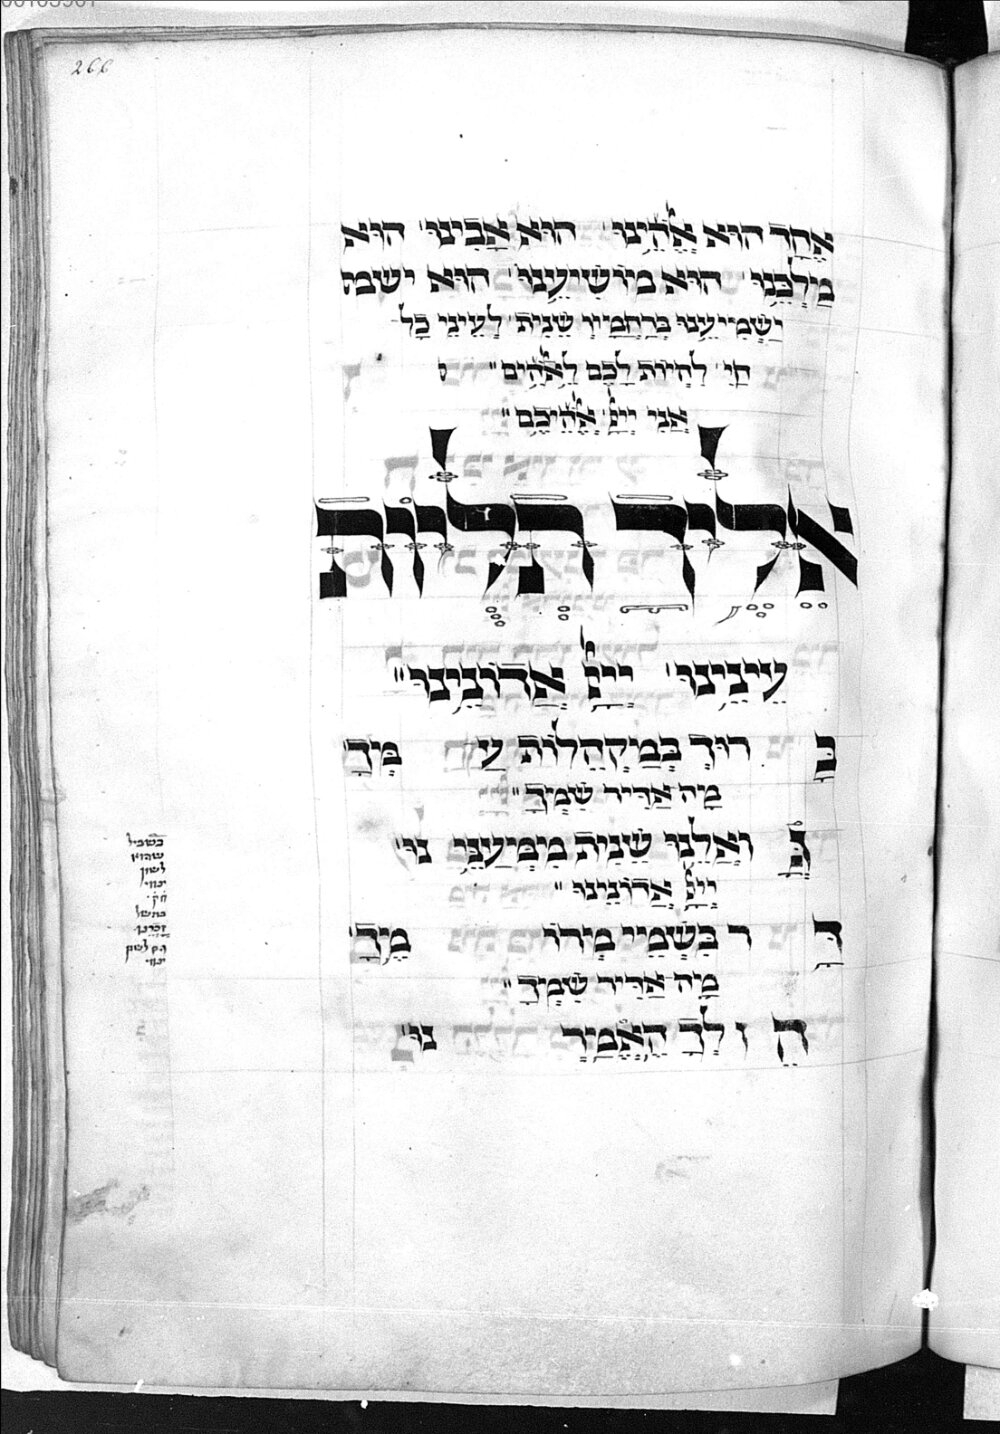 266
אֶחָד הוּא אֱלֹהֵינוּ הוּא אָבִינוּ הוּא
מַלְכֵּנוּ הוּא מוֹשִׁיעֵנוּ הוּא ישמ
יַשְׁמִיעֵנוּ בְּרַחֲמָיו שֵׁנִית לְעֵינֵי כָּל
חַי לִהְיוֹת לָכֶם לֵאלֹהִים
אֲנִי ייָ אֱלֹהֵיכֶם
אֵלֶיךָ תְּלוּיוֹת
עֵינֵינוּ ייָ אֲדוֹנֵינוּ
בָּ רוּךְ בְּמַקְהֲלוֹת עַ מֶּיךָ
מָה אַדִּיר שִׁמְךָ
גְּ וֹאֲלֵנוּ שֵׁנִית מִמַּעֲנֵּי נוּ
ייָ אֲדוֹנֵינוּ
דָּ ר בִּשְׁמֵי מְרוֹ מֶךָ
מָה אַדִּיר שִׁמְךָ
הֲ וֹלֵךְ הָאֲמִיר נוּ
בשביל
שהוא
לשון
יחיד